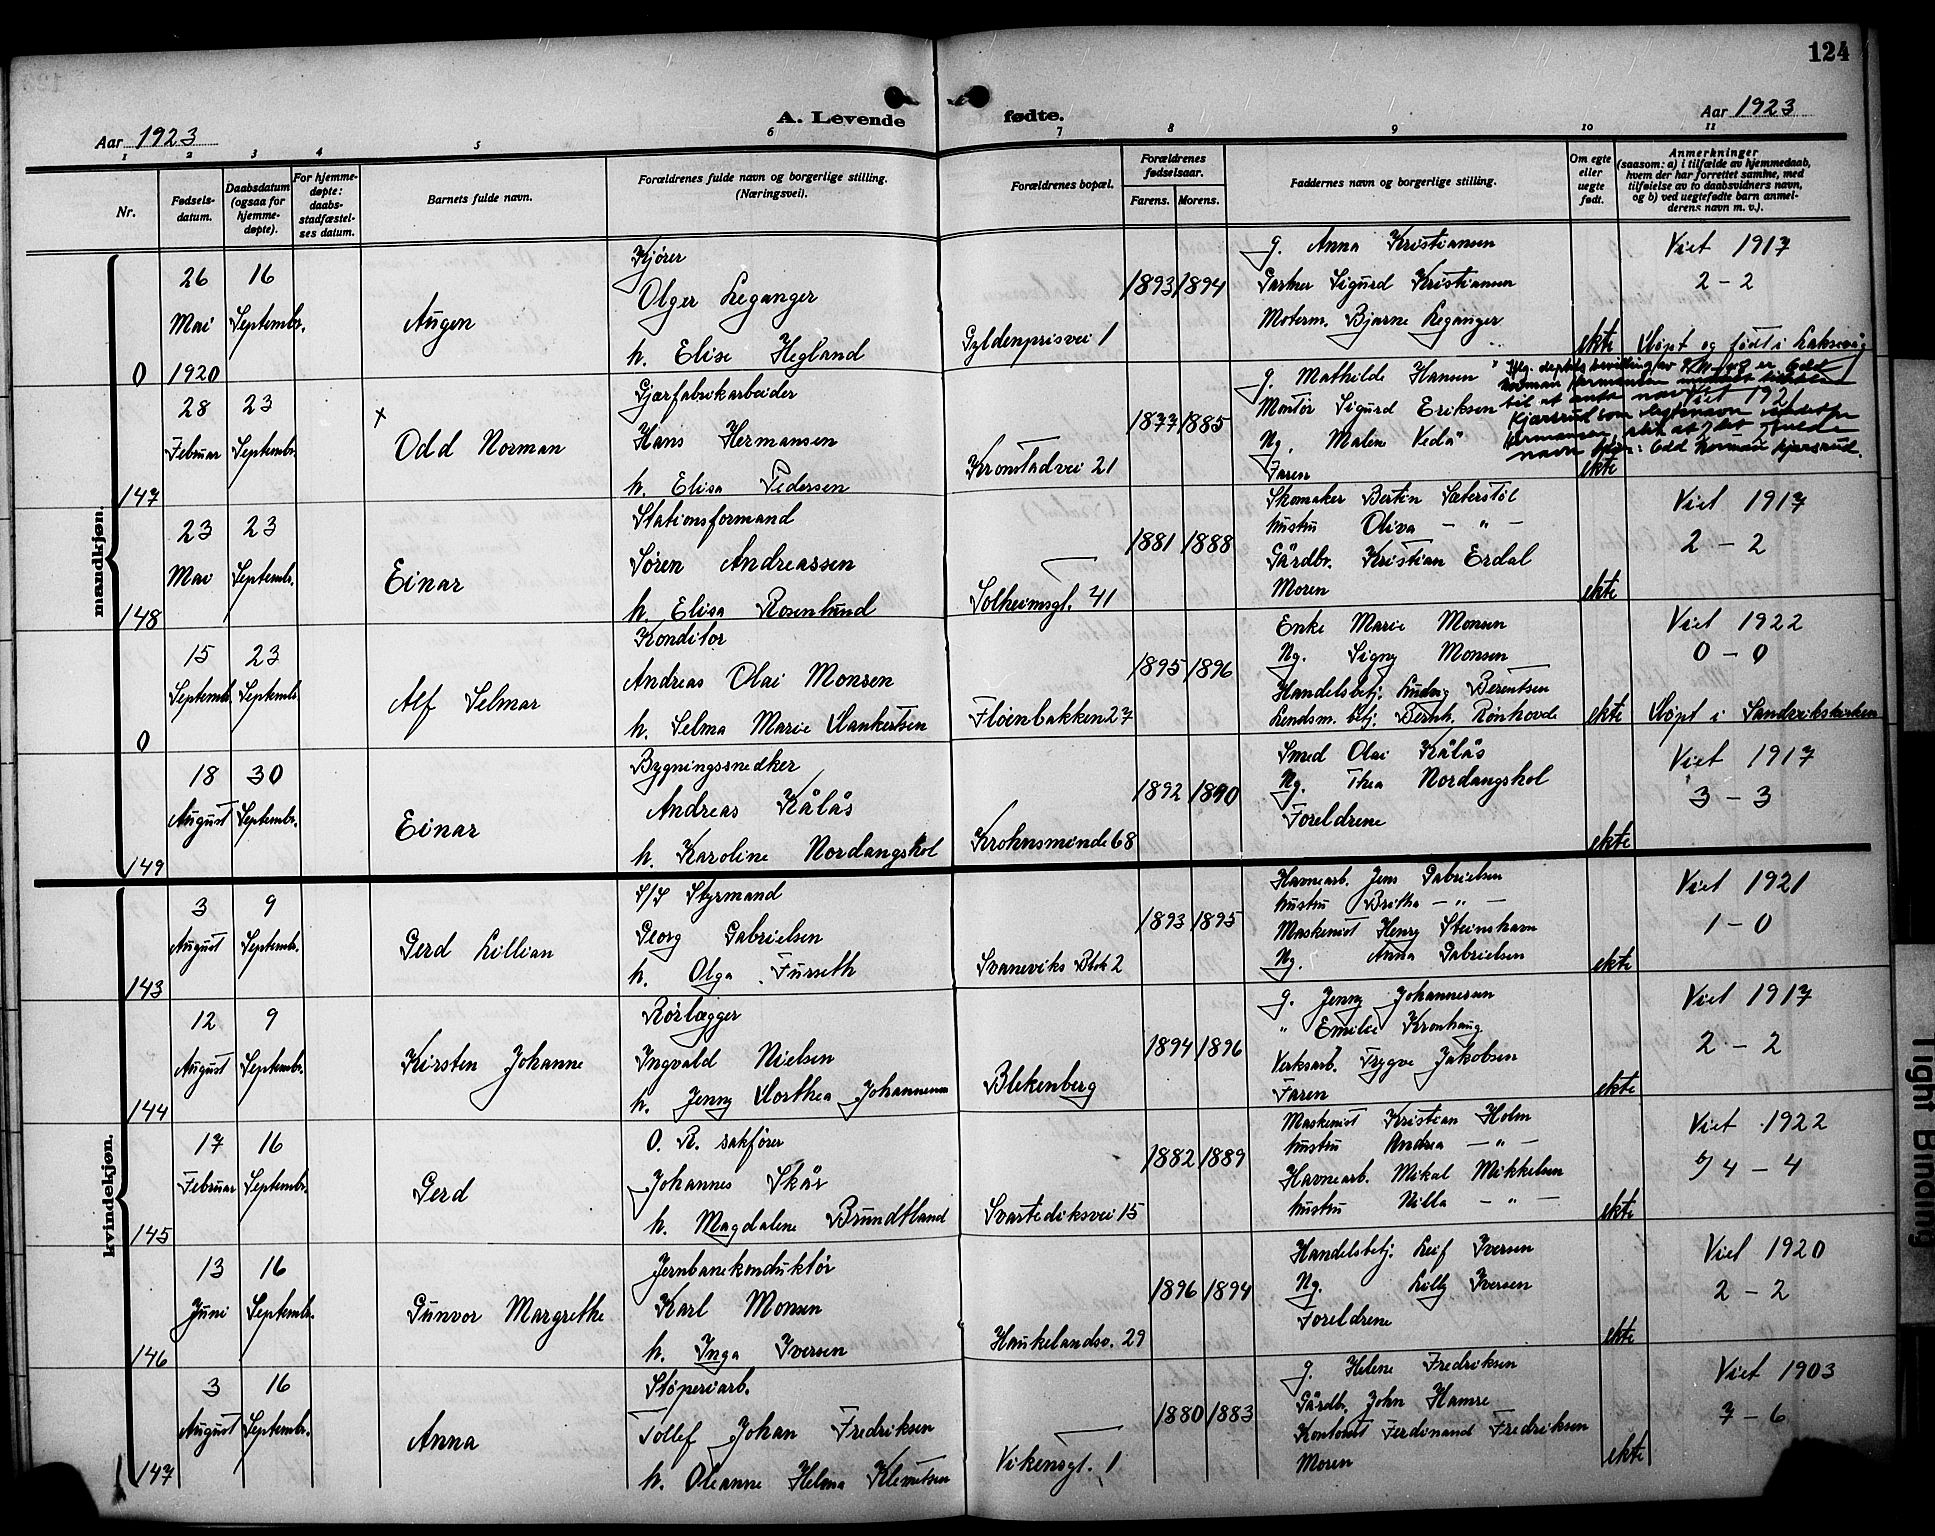 124
Aar 1923
A. Levende fødte.
Aar 1923
1 2 3 4 5 6 7 8 9 10 11
Nr.
Fødsels-
datum.
Daabsdatum
(ogsaa for
hjemme-
døpte).
For hjemme-
døpte:
daabs-
stadfæstel-
ses datum.
Barnets fulde navn.
Forældrenes fulde navn og borgerlige stilling.
(Næringsvei).
Forældrenes bopæl.
Forældrenes
fødselsaar.
Farens. Morens.
Faddernes navn og borgerlige stilling.
Om egte
eller
uegte
født.
Anmerkninger
(saasom: a) i tilfælde av hjemmedaab,
hvem der har forrettet samme, med
tilføielse av to daabsvidners navn,
og b) ved uegtefødte barn anmel-
derens navn m. v.).
mandkjøn.
0
26
Mai
1920
16
Septembr.
Augen
Kjører
Olger Leganger
h. Elise Hegland
Gyldenprisvei 1
1893 1894
g. Anna Kristiansen
Gartner Sigurd Kristiansen
Moterm. Bjarne Leganger
ekte
Viet 1917
2 - 2
Døpt og født i Laksevåg
147
28
Februar
23
Septembr.
x
Odd Norman
Gjærfabrikarbeider
Hans Hermansen
h. Elisa Pedersen
Kronstadvei 21
1877 1885
g. Mathilde Hansen
Montør Sigurd Eriksen
Ng. Malene Vedå
Faren
ekte
Viet 1921
Iflg. deptets bevilling av er Odd
Norman Hermansen
til at anta navnet
Kjærsrud som slegtsnavn istedetfor
Hermansen, slik at fulde
navn blir: Odd Norman Kjærsrud.
148
23
Mai
23
Septembr.
Einar
Stationsformand
Søren Andreassen
h. Elisa Rosenlund
Solheimsgt. 41
1881 1888
Skomaker Bertin Sæterstøl
hustru Oliva - " -
Gårdbr. Kristian Erdal
Moren
ekte
Viet 1917
2 - 2
0
15
Septembr.
23
Septembr.
Alf Selmar
Konditor
Andreas Olai Monsen
h. Selma Marie Dankertsen
Fløenbakken 27
1895 1896
Enke Marie Monsen
Ng. Signy Monsen
Handelsbetj. Ludvig Berentsen
Lendsm. betj. Bernh. Rønhovde
ekte
Viet 1922
0 - 0
Døpt i Sandvikskirken
149
18
August
30
Septembr.
Einar
Bygningssnedker
Andreas Kålås
h. Karoline Nordangskol
Krohnsminde 68
1892 1890
Smed Olai Kålås
Ng. Thea Nordangskol
Foreldrene
ekte
Viet 1917
3 - 3
kvindekjøn.
143
3
August
9
Septembr.
Gerd Lillian
S/S Styrmand
Georg Gabrielsen
h. Olga Furseth
Svaneviks Blok 2
1893 1895
Havnearb. Jens Gabrielsen
hustru Britha - " -
Maskinist Henry Steinsham
Ng. Anna Gabrielsen
ekte
Viet 1921
1 - 0
144
12
August
9
Septembr.
Kirsten Johanne
Rørlægger
Ingvald Nielsen
h. Jenny Dorthea Johannesen
Blekenberg
1894 1896
g. Jenny Johannesen
" Emilie Kronhaug
Verksarb. Trygve Jakobsen
Faren
ekte
Viet 1917
2 - 2
145
17
Februar
16
Septembr.
Gerd
O. R. sakfører
Johannes Skår
h. Magdalene Brundtland
Svartediksvei 15
1882 1889
Maskinist Kristian Holm
hustru Andrea - " -
Havnearb. Mikal Mikkelsen
hustru Nilla - " -
ekte
Viet 1922
4 - 4
146
13
Juni
16
Septembr.
Gunvor Margrethe
Jernbanekonduktør
Karl Monsen
h. Inga Iversen
Haukelandsv. 29
1896 1894
Handelsbetj. Leif Iversen
Ng. Lilly Iversen
Foreldrene
ekte
Viet 1920
2 - 2
147
3
August
16
Septembr.
Anna
Støperiarb.
Tollef Johan Fredriksen
h. Oleanne Helma Klemetsen
Vikensgt. 1
1880 1883
g. Helene Fredriksen
Gårdb. John Hamre
Kontorist Ferdinand Fredriksen
Moren
ekte
Viet 1903
7 - 6
Tight Binding